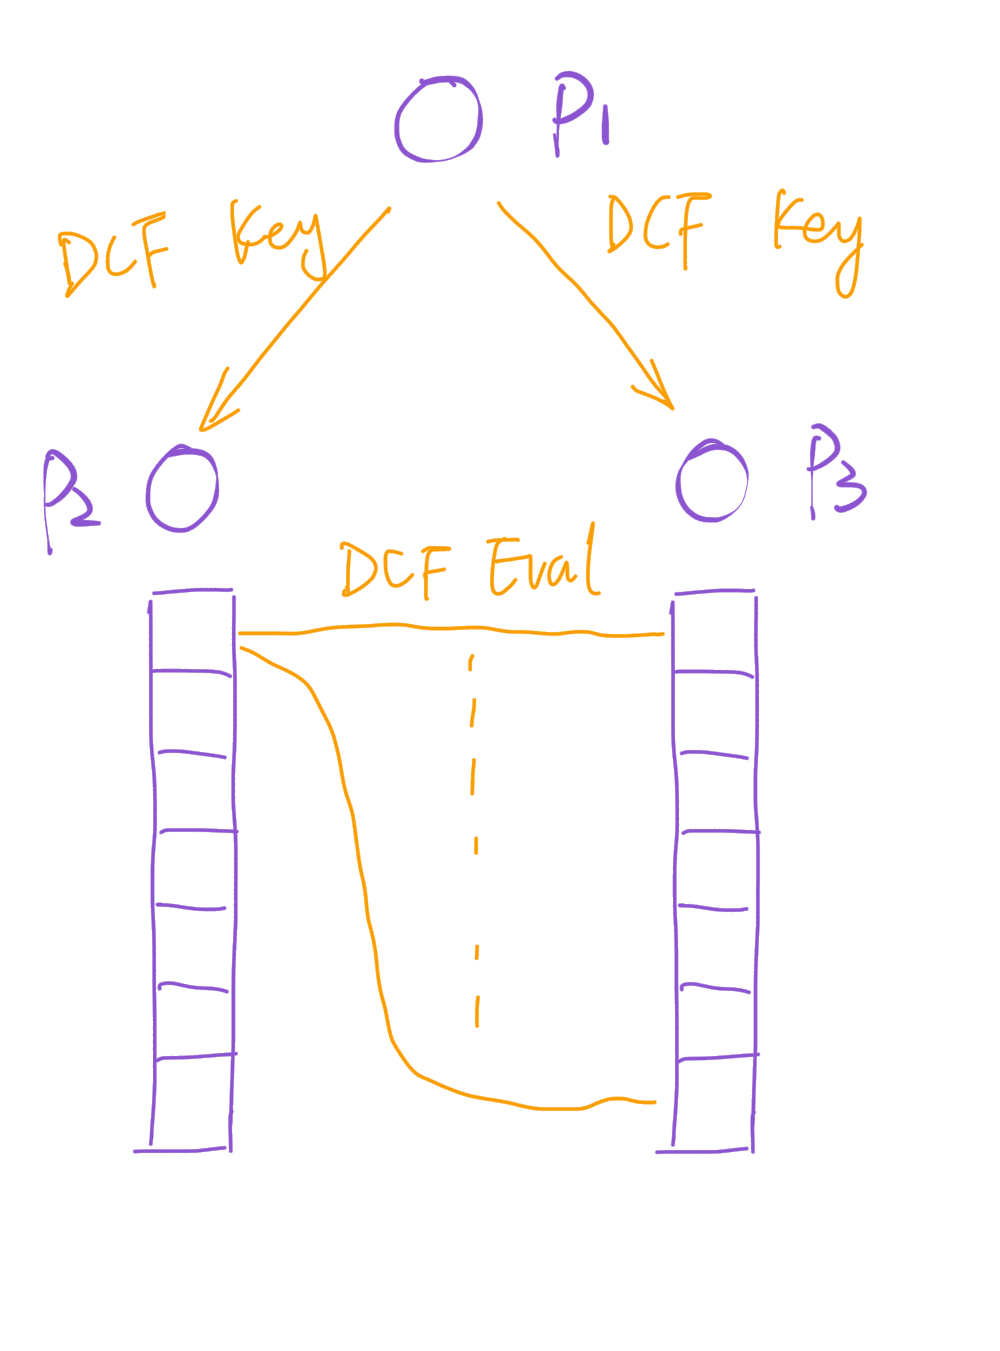 P1
DCF Key
DCF Key
P2
P3
DCF Eval